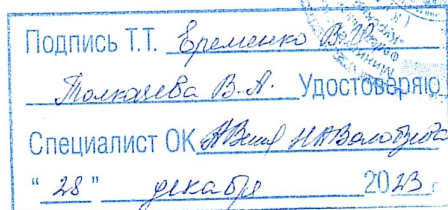 Подпись Т.Т. Еременко В.И.
Толкачева В.А. Удостоверяю
Специалист ОК
" 28 " декабря 2023 г.